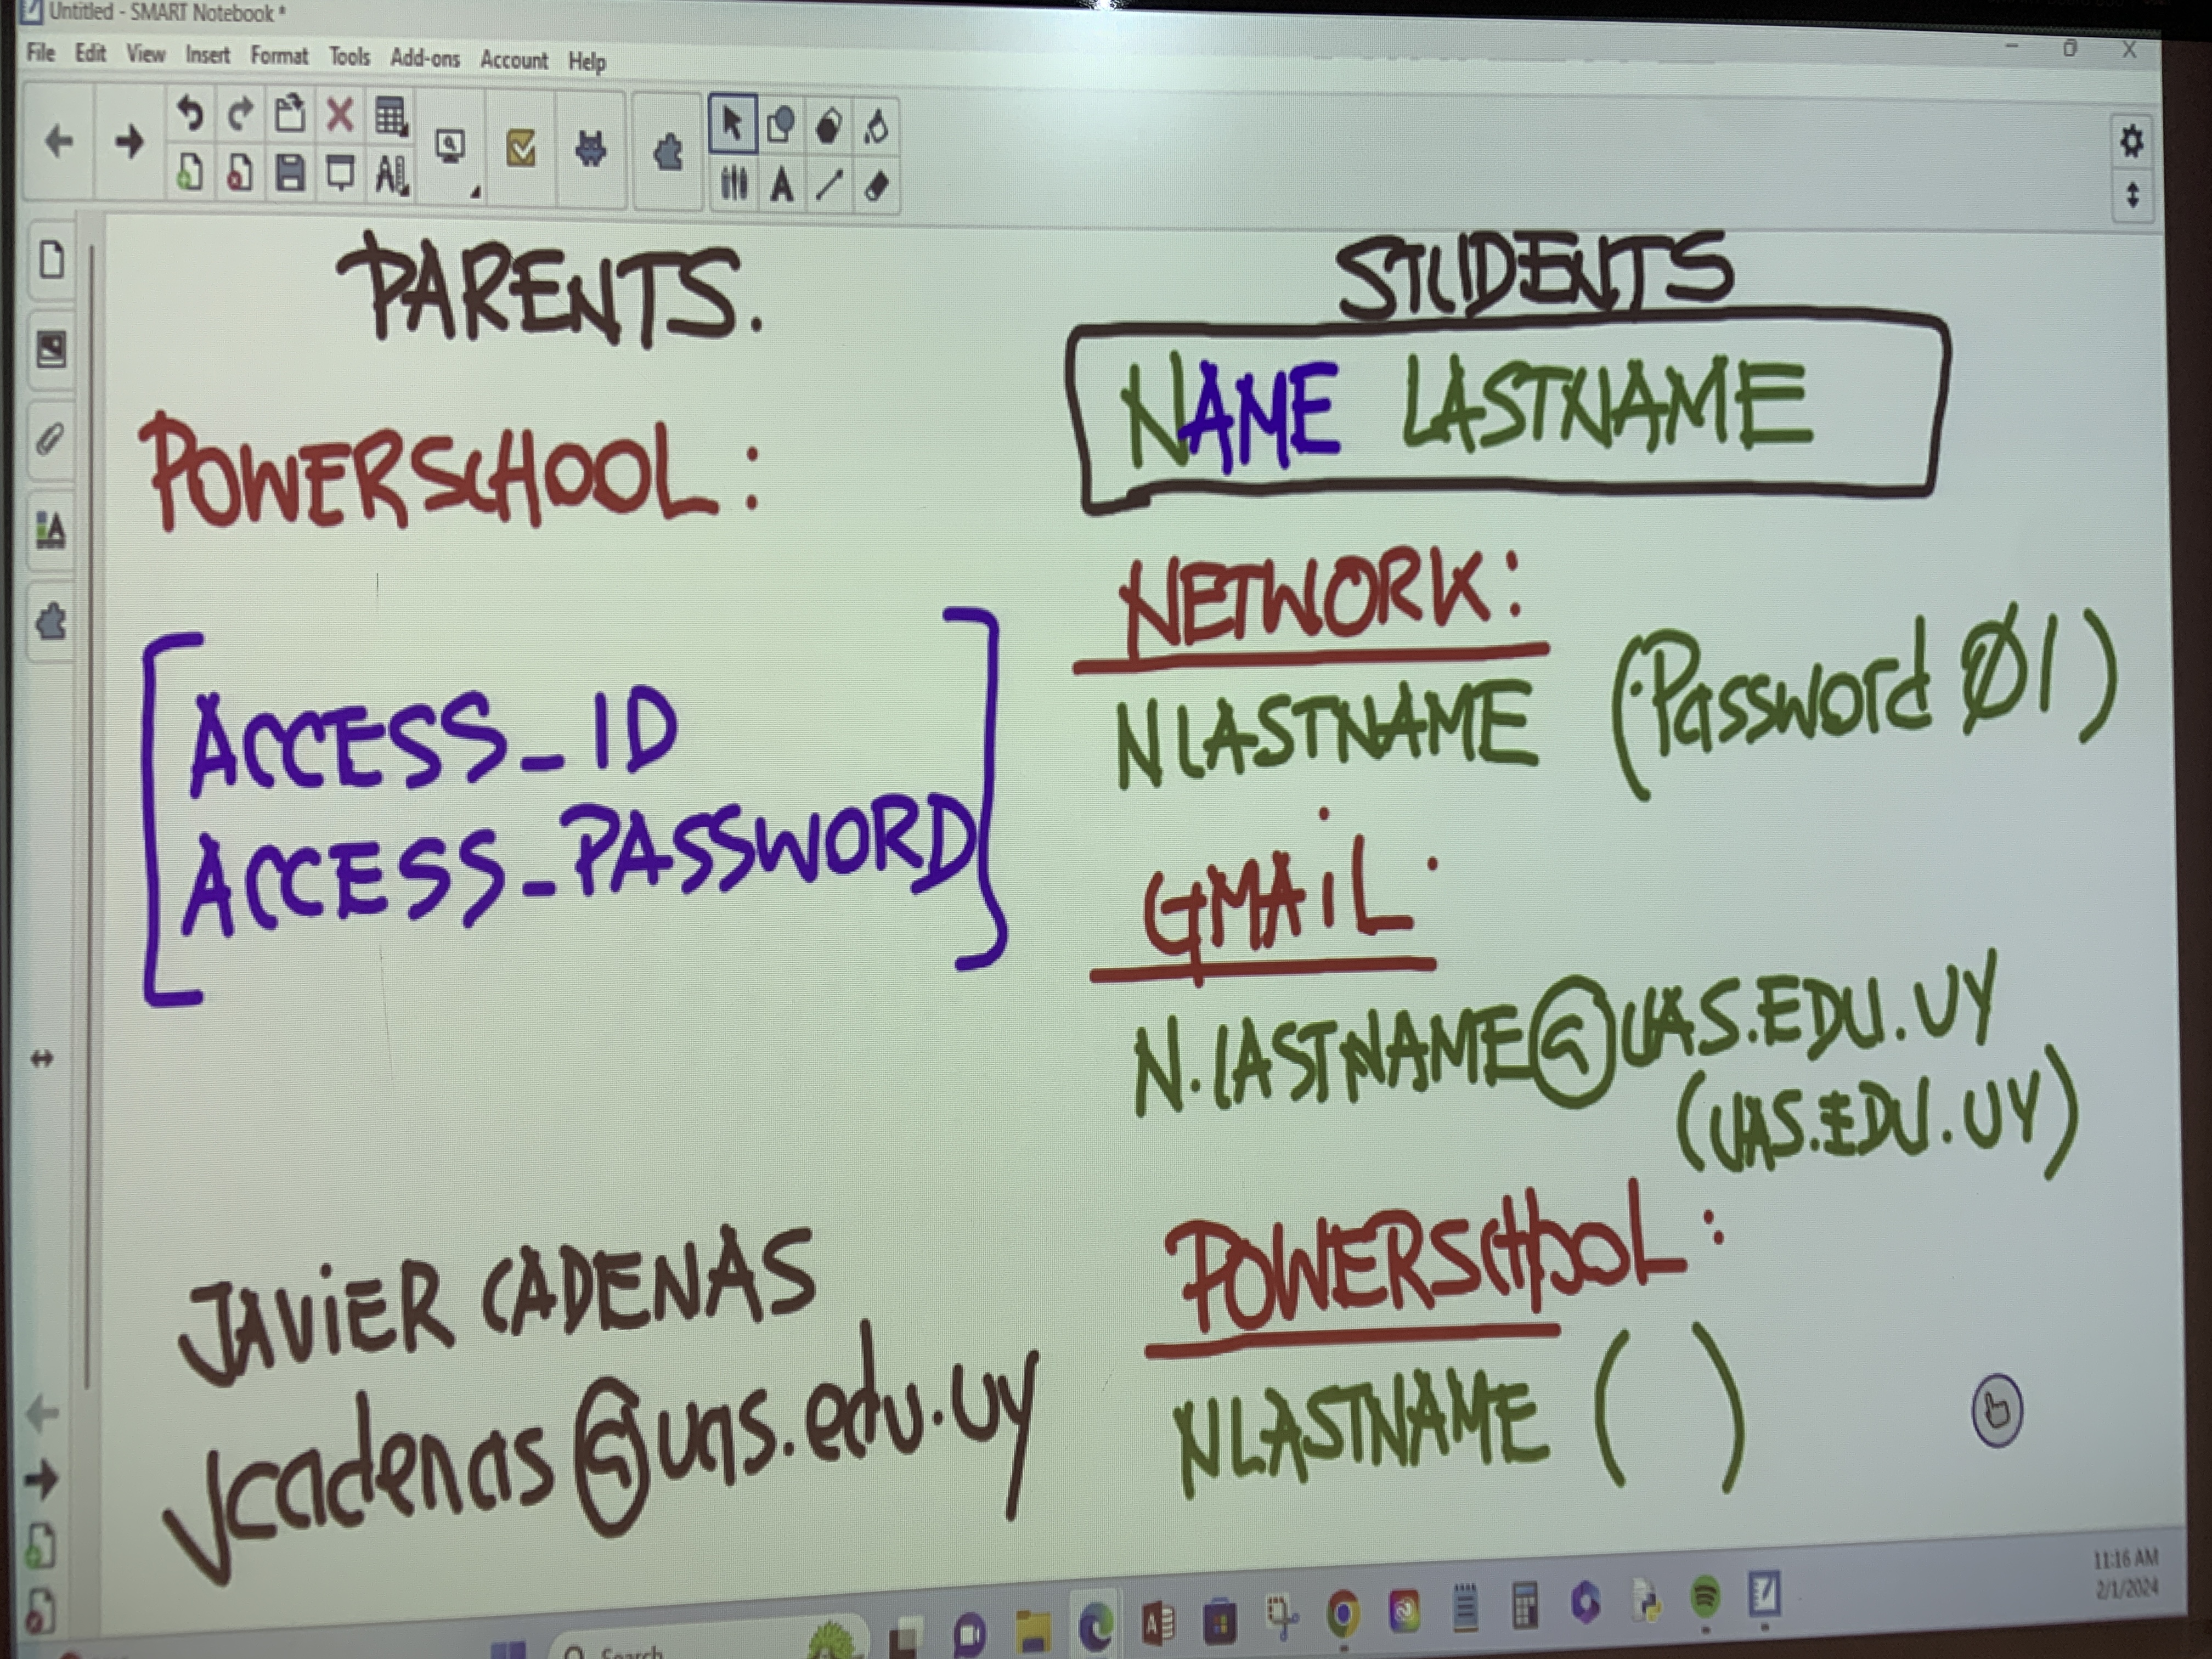 Untitled - SMART Notebook *
File Edit View Insert Format Tools Add-ons Account Help
PARENTS.
POWERSCHOOL:
ACCESS_ID
ACCESS_PASSWORD
JAViER CADENAS
Jcadenas@uas.edu.uy
STUDENTS
NAME LASTNAME
NETWORK:
NLASTNAME (Password Ø1)
GMAiL:
N.LASTNAME@UAS.EDU.UY
(UAS.EDU.UY)
POWERSCHOOL:
NLASTNAME ( )
Search
11:16 AM
2/1/2024